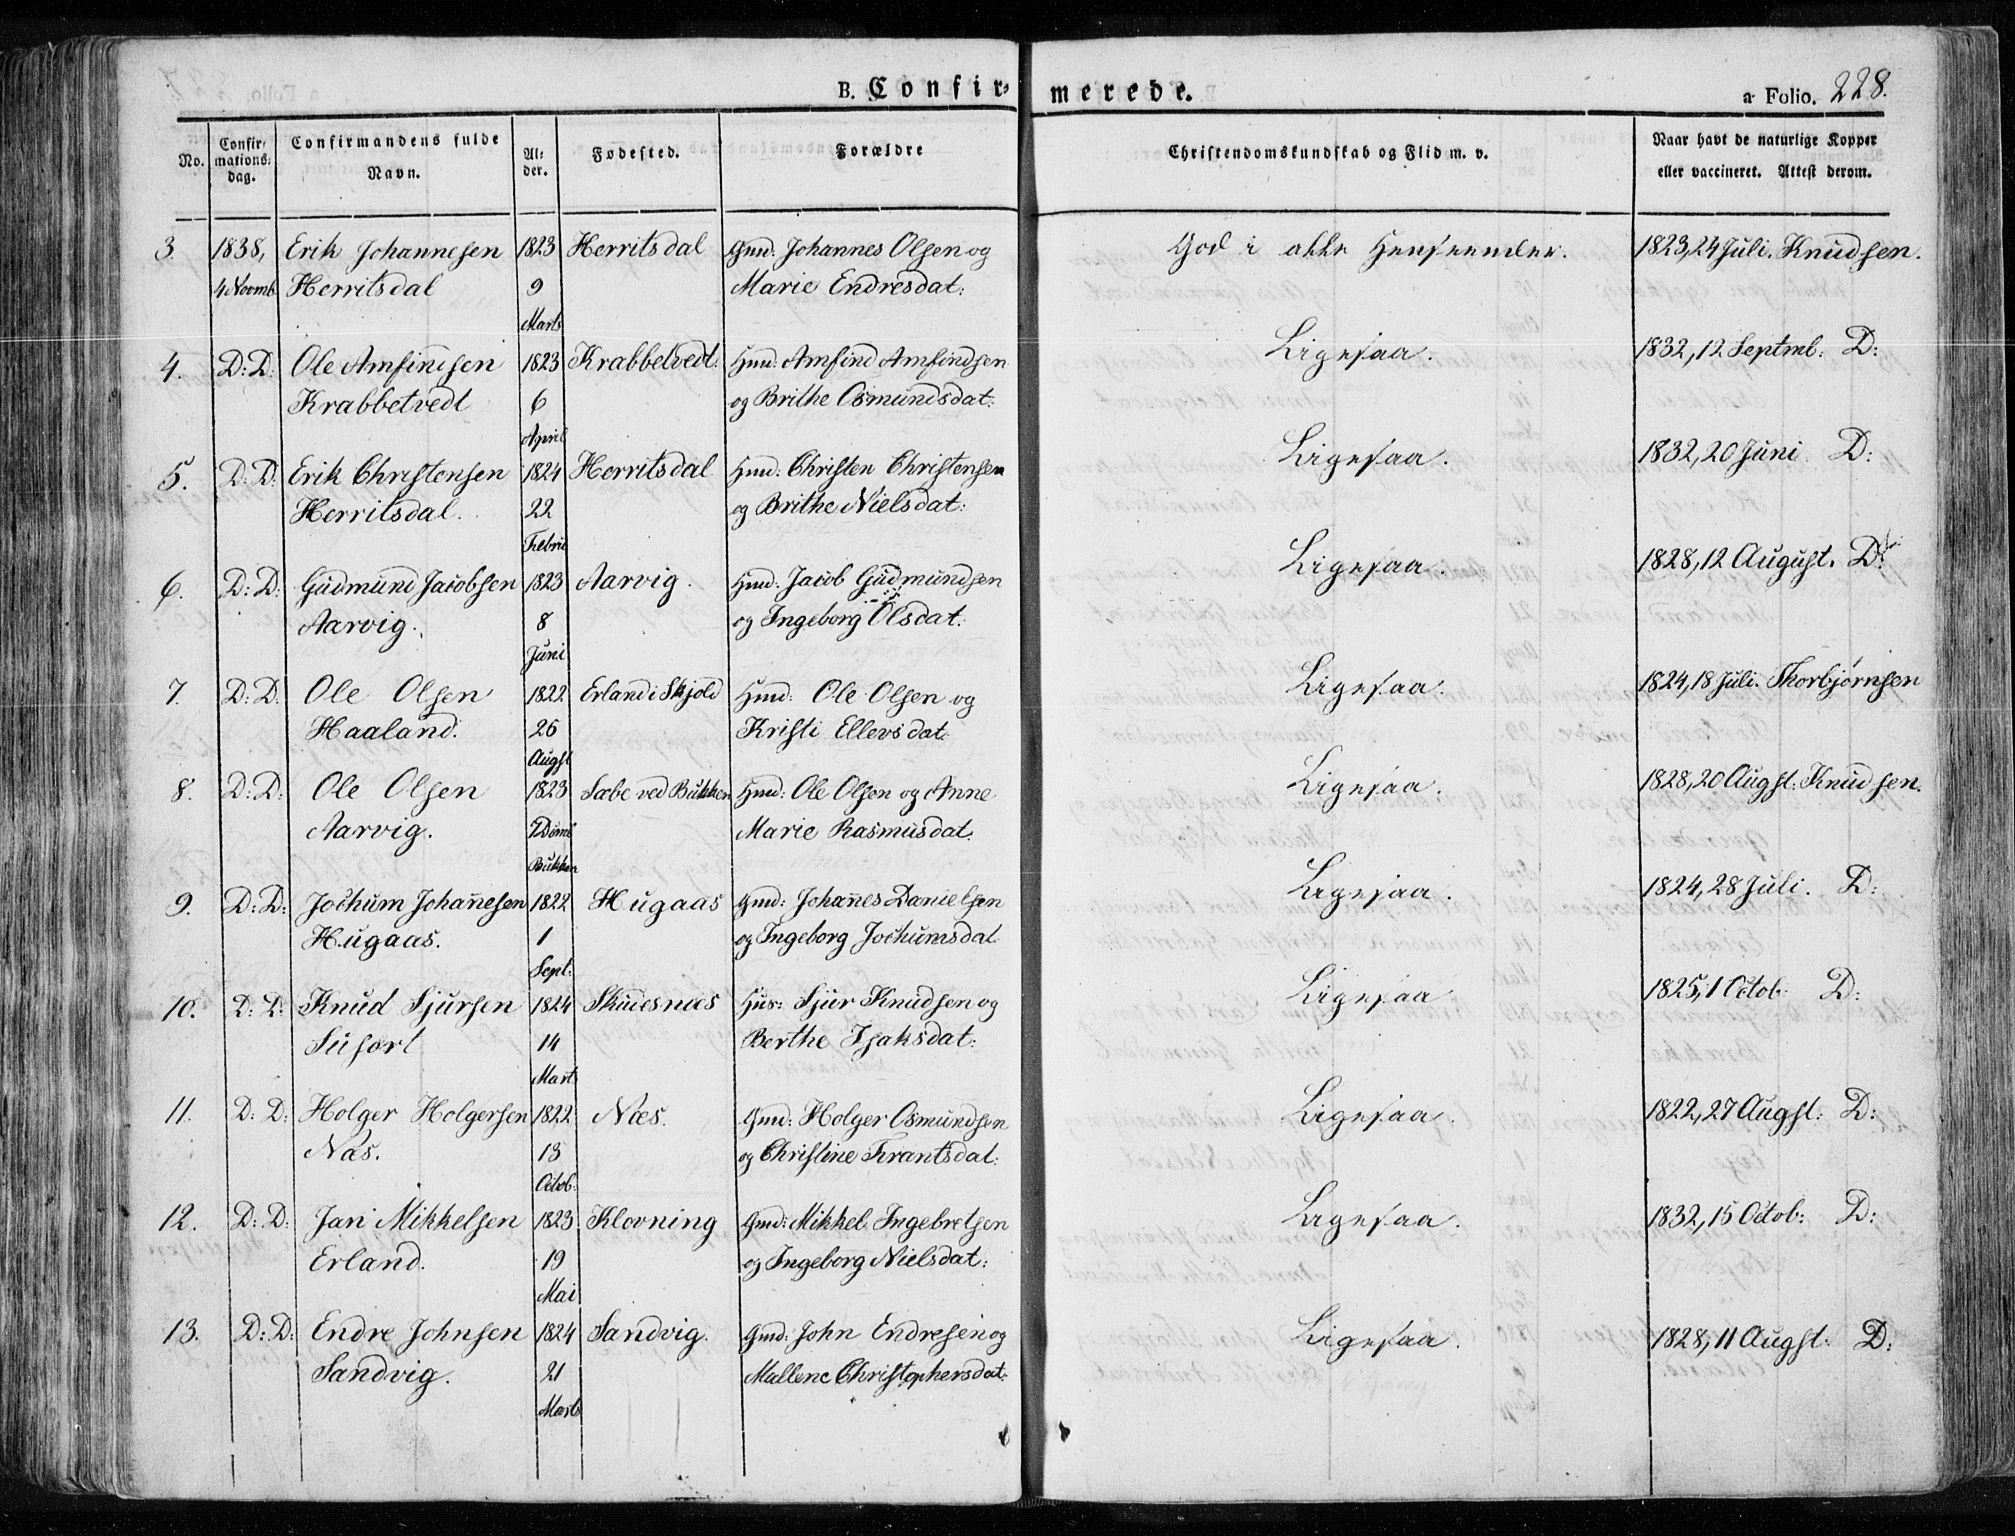 B. Confirmerede.
a Folio. 228.
No.
Confirmations-dag.
Confirmandens fulde Navn.
Alder.
Fødested.
Forældre
Christendomskundskab og Flid m. v.
Naar havt de naturlige Kopper eller vaccineret. Attest derom.
3. 1838, Erik Johannesen 1823 Herritsdal Gmd: Johannes Olsen og God i alle Henseender. 1823, 24 Juli. Knudsen.
4 Novmb. Herritsdal 9 Marie Endresdat:
Marts
4. D: D: Ole Amfindsen 1823 Krabbetvedt. Hmd: Amfind Amfindsen Ligesaa. 1832, 12 Septmb: D:
Krabbetvedt 6 og Brithe Osmundsdat:
April
5. D: D: Erik Christensen 1824 Herritsdal Hmd: Christen Christensen Ligesaa. 1832, 20 Juni D:
Herritsdal. 22 og Brithe Nielsdat:
Febru
6. D: D: Gudmund Jacobsen 1823 Aarvig. Hmd: Jacob Gudmundsen Ligesaa. 1828, 12 August. D:
Aarvig. 8 og Ingeborg Olsdat:
Juni
7. D: D: Ole Olsen 1822 Erland i Skjold Hmd: Ole Olsen og Ligesaa. 1824, 18 Juli. Thorbjørnsen
Haaland. 26 Kristi Ellevsdat:
Augst
8. D: D: Ole Olsen 1823 Sæbe ved Bukken Hmd: Ole Olsen og Anne Ligesaa. 1828, 20 Augst: Knudsen.
Aarvig. 7 Dcmb Marie Rasmusdat:
Bukken
9. D: D: Jochum Johañesen 1822 Hugaas Gmd: Johañes Danielsen Ligesaa. 1824, 28 Juli. D:
Hugaas. 1 og Ingeborg Jochumsdat
Sept:
10. D: D: Knud Sjursen 1824 Skudesnæs Hus: Sjur Knudsen og Ligesaa 1825, 1 Octob: D:
14 Berthe Isaksdat:
Mart
11. D: D: Holger Holgersen 1822 Næs. Gmd: Holger Osmundsen Ligesaa. 1822, 27 Augst: D:
Næs. 13 og Christine Frantsdat:
Octob:
12. D: D: Jan Mikkelsen 1823 Klovning Gmd: Mikkel Ingebretsen Ligesaa. 1832, 15 Octob: D:
Erland. 19 og Ingeborg Nielsdat:
Mai
13. D: D: Endre Johnsen 1824 Sandvig. Gmd: John Endresen og Ligesaa. 1828, 11 Augst: D:
Sandvig. 21 Mallene Christophersdat:
Marts